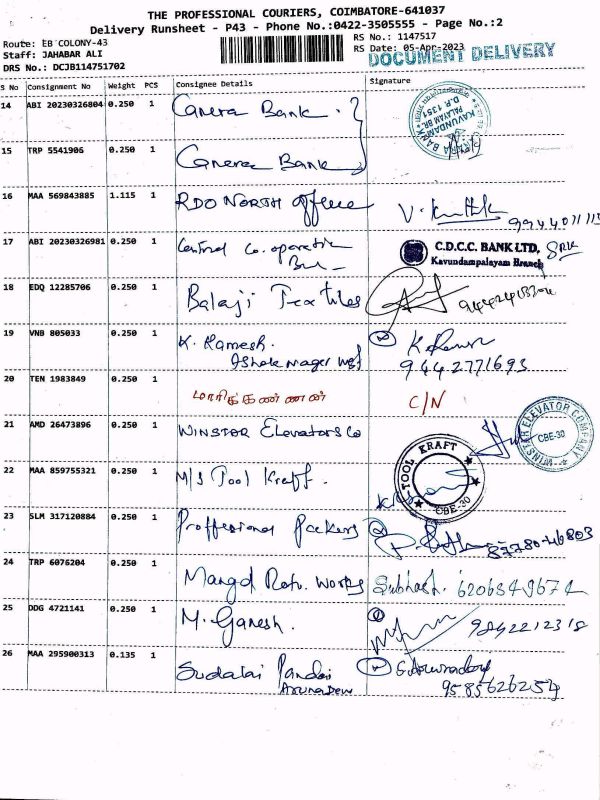 THE PROFESSIONAL COURIERS, COIMBATORE-641037
Delivery Runsheet - P43 - Phone No.:0422-3505555 - Page No.:2
Route: EB COLONY-43
RS No.: 1147517
Staff: JAHABAR ALI
RS Date: 05-Apr-2023
DRS No.: DCJB114751702
DOCUMENT DELIVERY
S No Consignment No Weight PCS Consignee Details Signature
14 ABI 20230326804 0.250 1 Canera Bank.
15 TRP 5541906 0.250 1 Canera Bank
16 MAA 569843885 1.115 1 RDO NORTH office
17 ABI 20230326981 0.250 1 Central Co.operative
C.D.C.C. BANK LTD,
Kavundampalayam Branch
18 EDQ 12285706 0.250 1 Balaji Textiles
19 VNB 805033 0.250 1 K. Ramesh.
Ashok Nagar West
9442771693
20 TEN 1983849 0.250 1 மாரிக்கண்ணன் C/N
21 AMD 26473896 0.250 1 WINSTAR Elevators Co
WINSTAR ELEVATOR COMPANY
CBE-30
22 MAA 859755321 0.250 1 M/S Tool Kraft.
TOOL KRAFT
CBE-30
23 SLM 317120884 0.250 1 Proffesional Packers
87780-46803
24 TRP 6076204 0.250 1 Works Subhash. 6206849674
25 DDG 4721141 0.250 1 M. Ganesh.
9842212318
26 MAA 295900313 0.135 1 Sudalai Pandai
9585626254